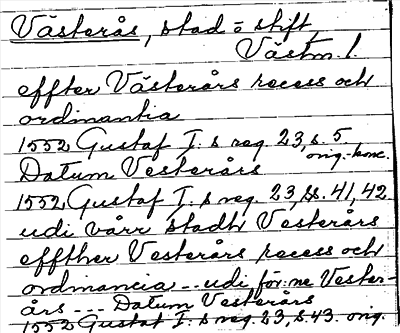 Västerås, stad o stift,
Västm. l.
effter Västerårs recess och
ordinantia
1552 Gustaf I:s reg. 23, s. 5.
orig.-konc.
Datum Vesterårs
1552 Gustaf I:s reg. 23, ss. 41, 42
udi vårr stadh Vesterårs
effther Vesterårs recess och
ordinancia -- udi för:ne Vester-
års --- Datum Vesterårs
1552 Gustaf I:s reg. 23, s. 43. orig.